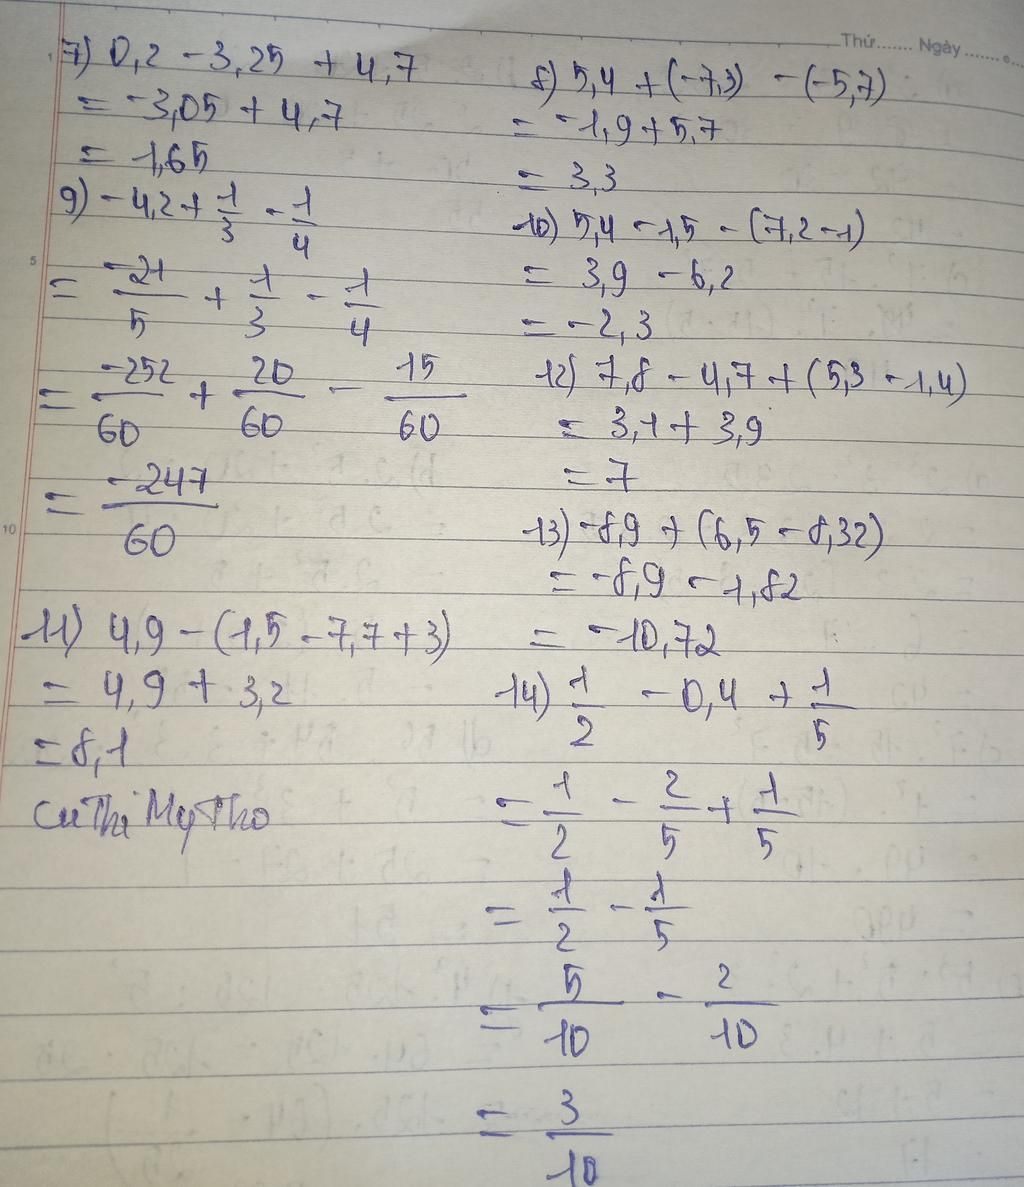 Thứ....... Ngày.......
7) 0,2 - 3,25 + 4,7
= -3,05 + 4,7
= 1,65
8) 5,4 + (-7,3) - (-5,7)
= -1,9 + 5,7
= 3,3
9) -4,2 + 1/3 - 1/4
= -21/5 + 1/3 - 1/4
= -252/60 + 20/60 - 15/60
= -247/60
10) 5,4 - 1,5 - (7,2 - 1)
= 3,9 - 6,2
= -2,3
12) 7,8 - 4,7 + (5,3 - 1,4)
= 3,1 + 3,9
= 7
13) -8,9 + (6,5 - 8,32)
= -8,9 - 1,82
= -10,72
11) 4,9 - (1,5 - 7,7 + 3)
= 4,9 + 3,2
= 8,1
14) 1/2 - 0,4 + 1/5
= 1/2 - 2/5 + 1/5
= 1/2 - 1/5
= 5/10 - 2/10
= 3/10
5
10